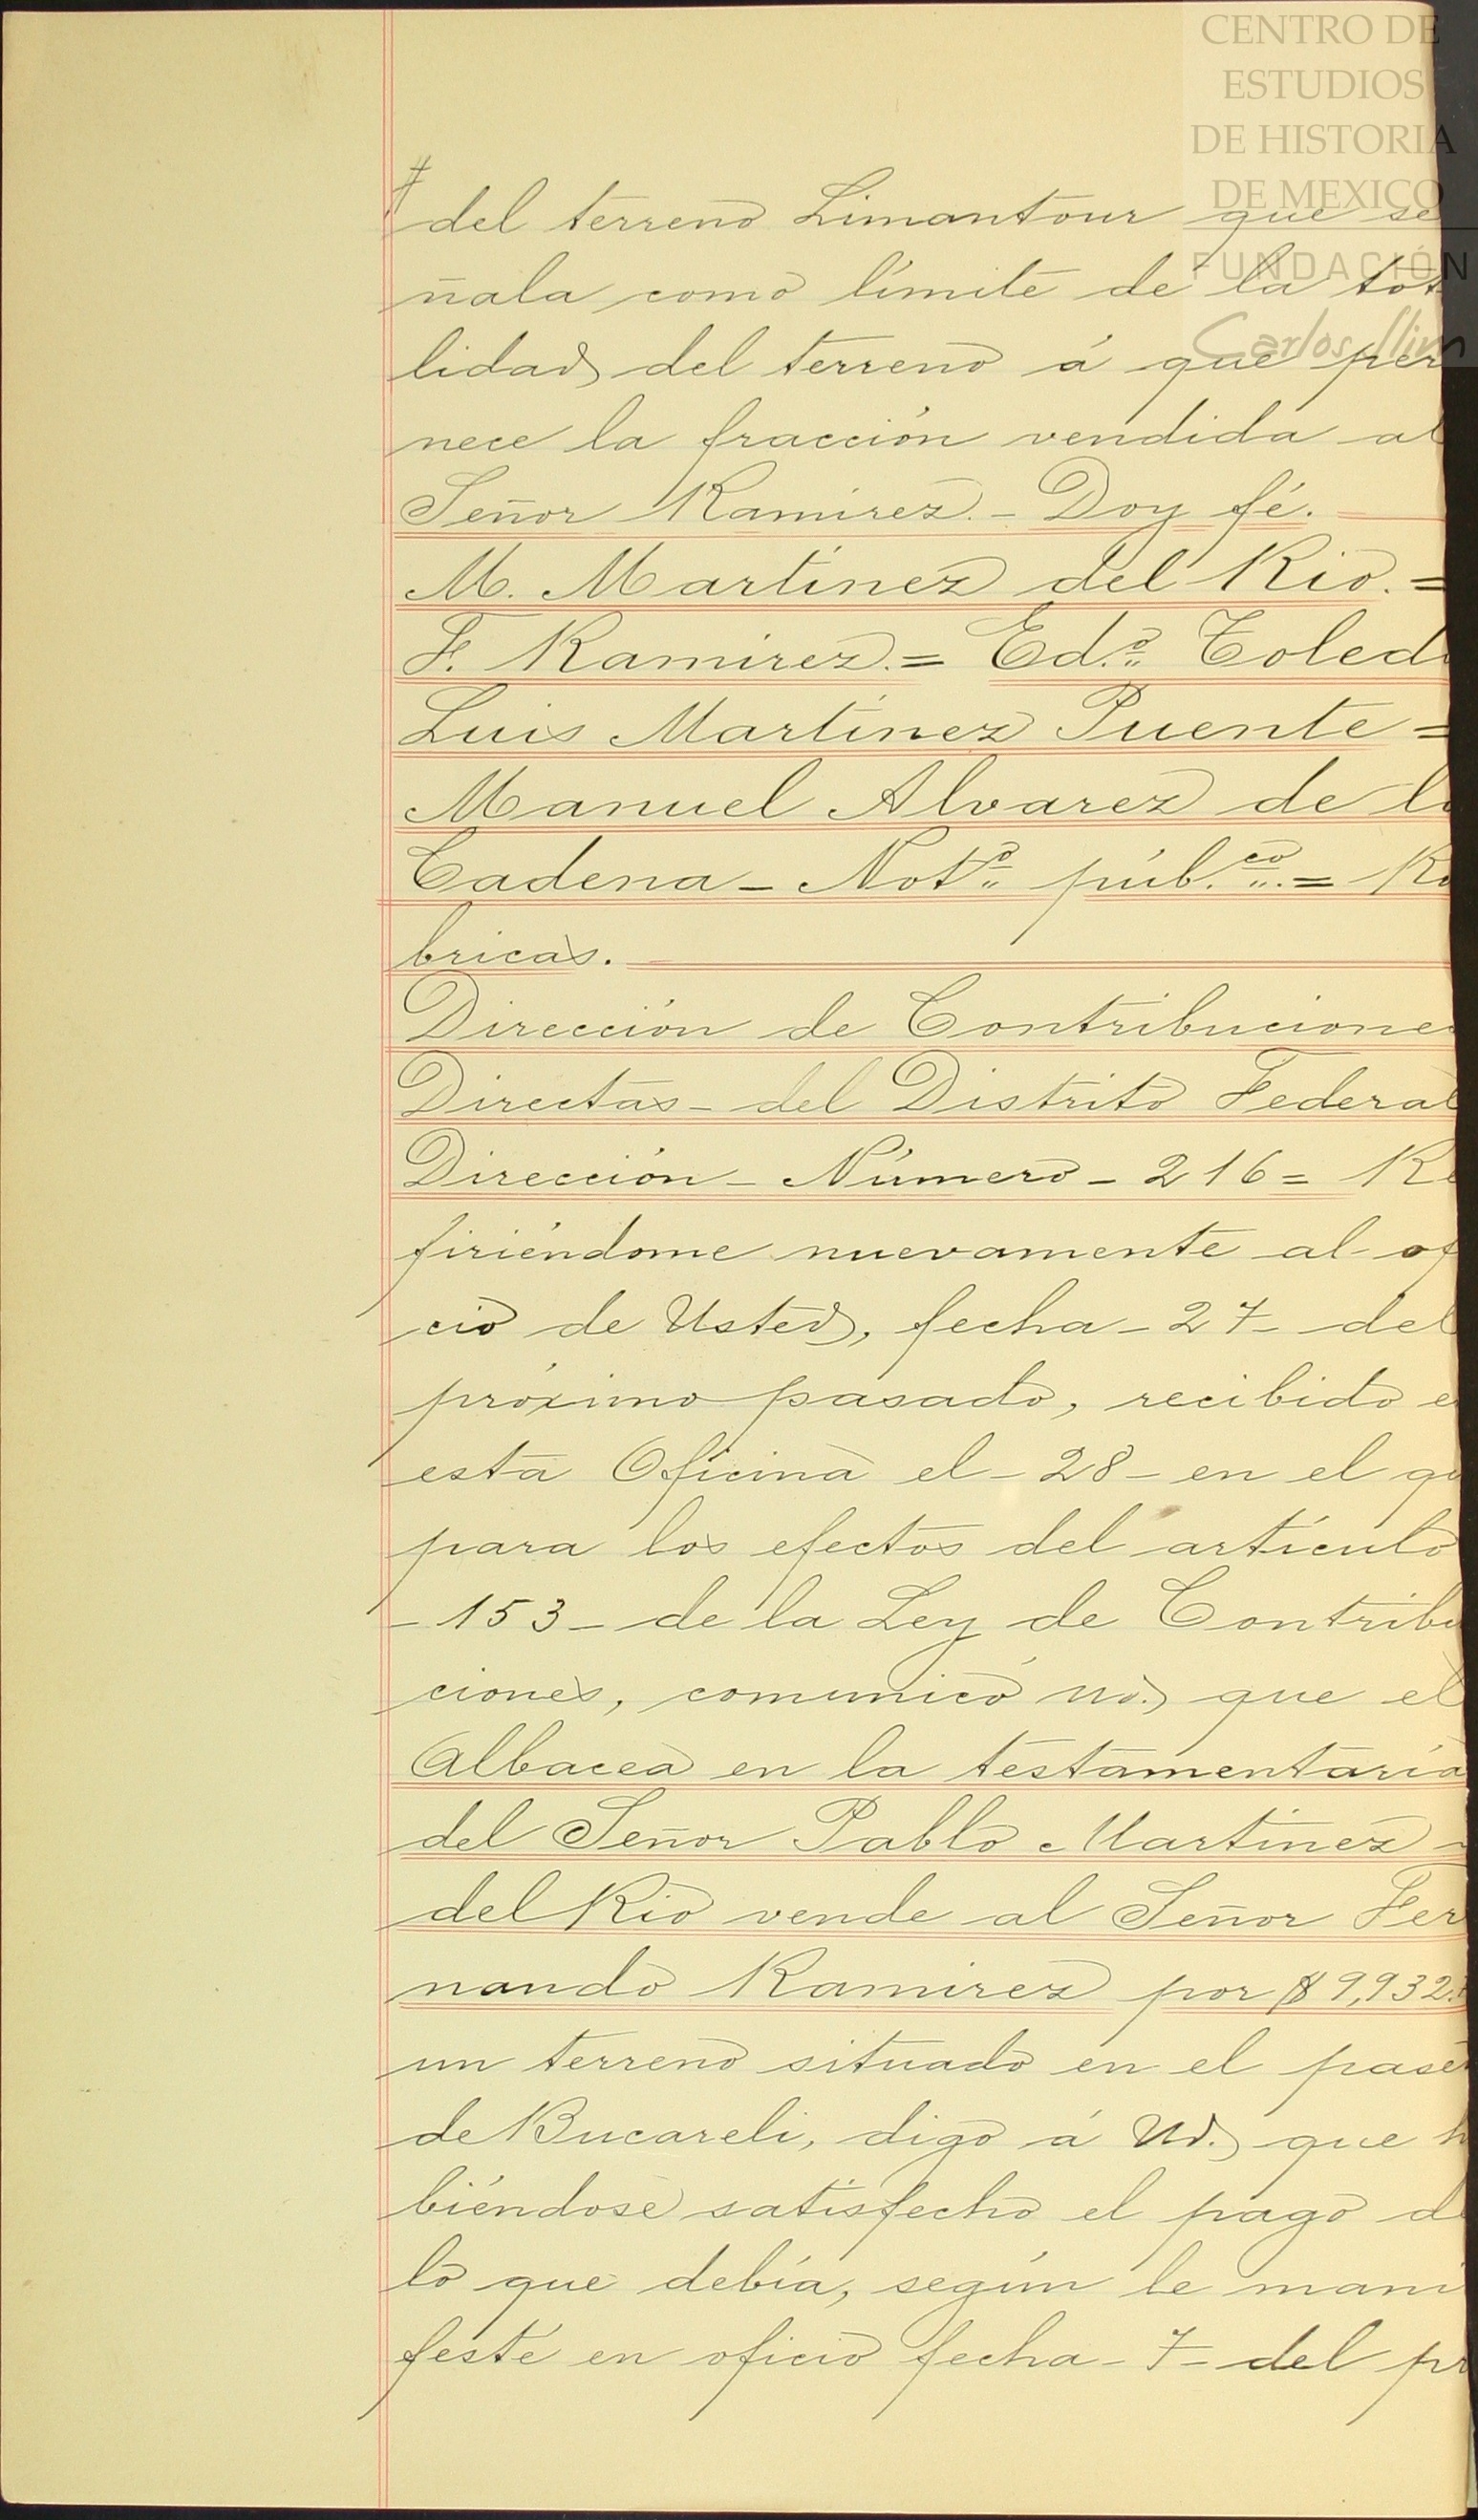 CENTRO DE
ESTUDIOS
DE HISTORIA
DE MEXICO
FUNDACIÓN
Carlos Slim
del terreno Limantour que se
ñala como límite de la tot
lidad del terreno á que per
nece la fracción vendida al
Señor Ramirez.- Doy fé.
M. Martínez del Rio.=
F. Ramirez.= Ed.o Toled
Luis Martínez Puente=
Manuel Alvarez de l
Cadena - Not.o púb.co.= R
bricas.
Dirección de Contribucione
Directas - del Distrito Federal
Dirección - Número - 216 = Re
firiéndome nuevamente al of
cio de Usted, fecha - 27 - del
próximo pasado, recibido e
esta Oficina el - 28 - en el qu
para los efectos del artículo
- 153 - de la Ley de Contribu
ciones, comunicó Ud. que el
Albacea en la testamentaría
del Señor Pablo Martinez -
del Rio vende al Señor Fer
nando Ramirez por $9,932.
un terreno situado en el pase
de Bucareli, digo á Ud. que h
biéndose satisfecho el pago d
lo que debía, según le mani
festé en oficio fecha - 7 - del pr